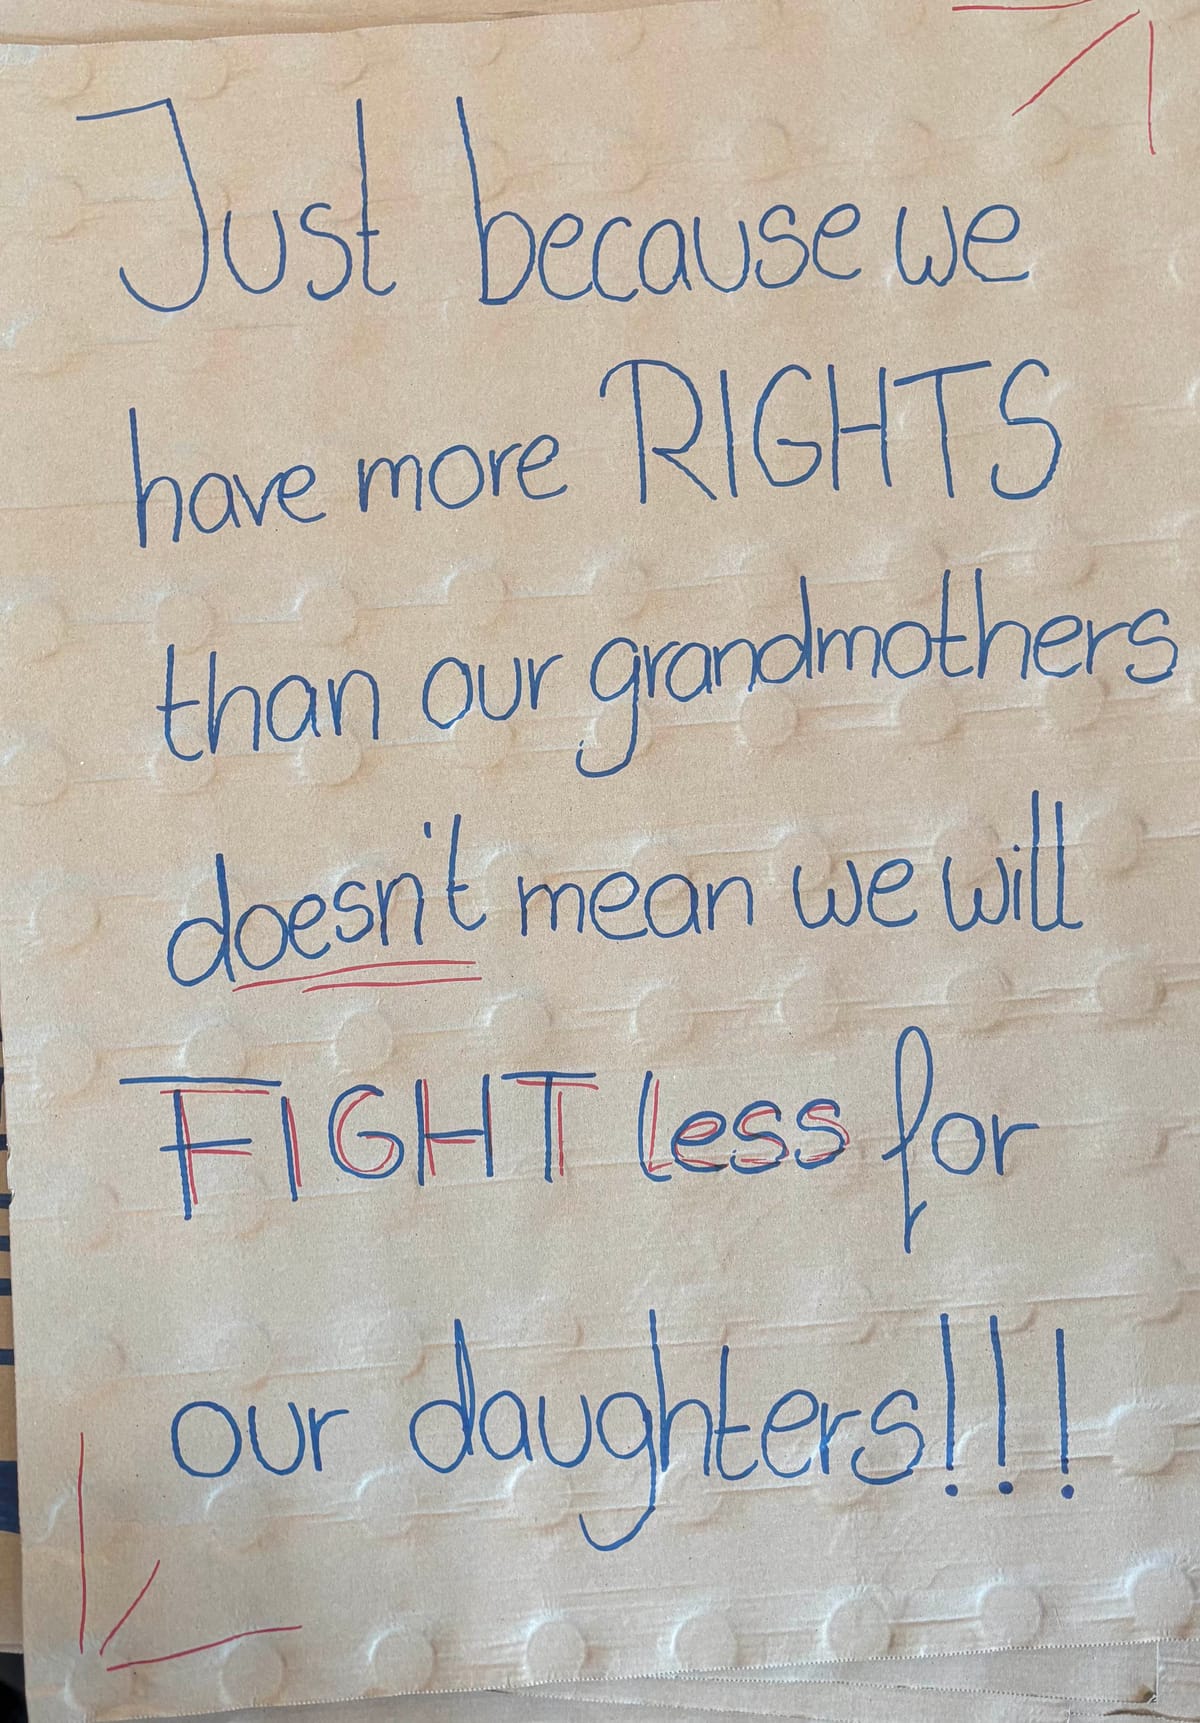 Just because we
have more RIGHTS
than our grandmothers
doesn't mean we will
FIGHT less for
our daughters!!!